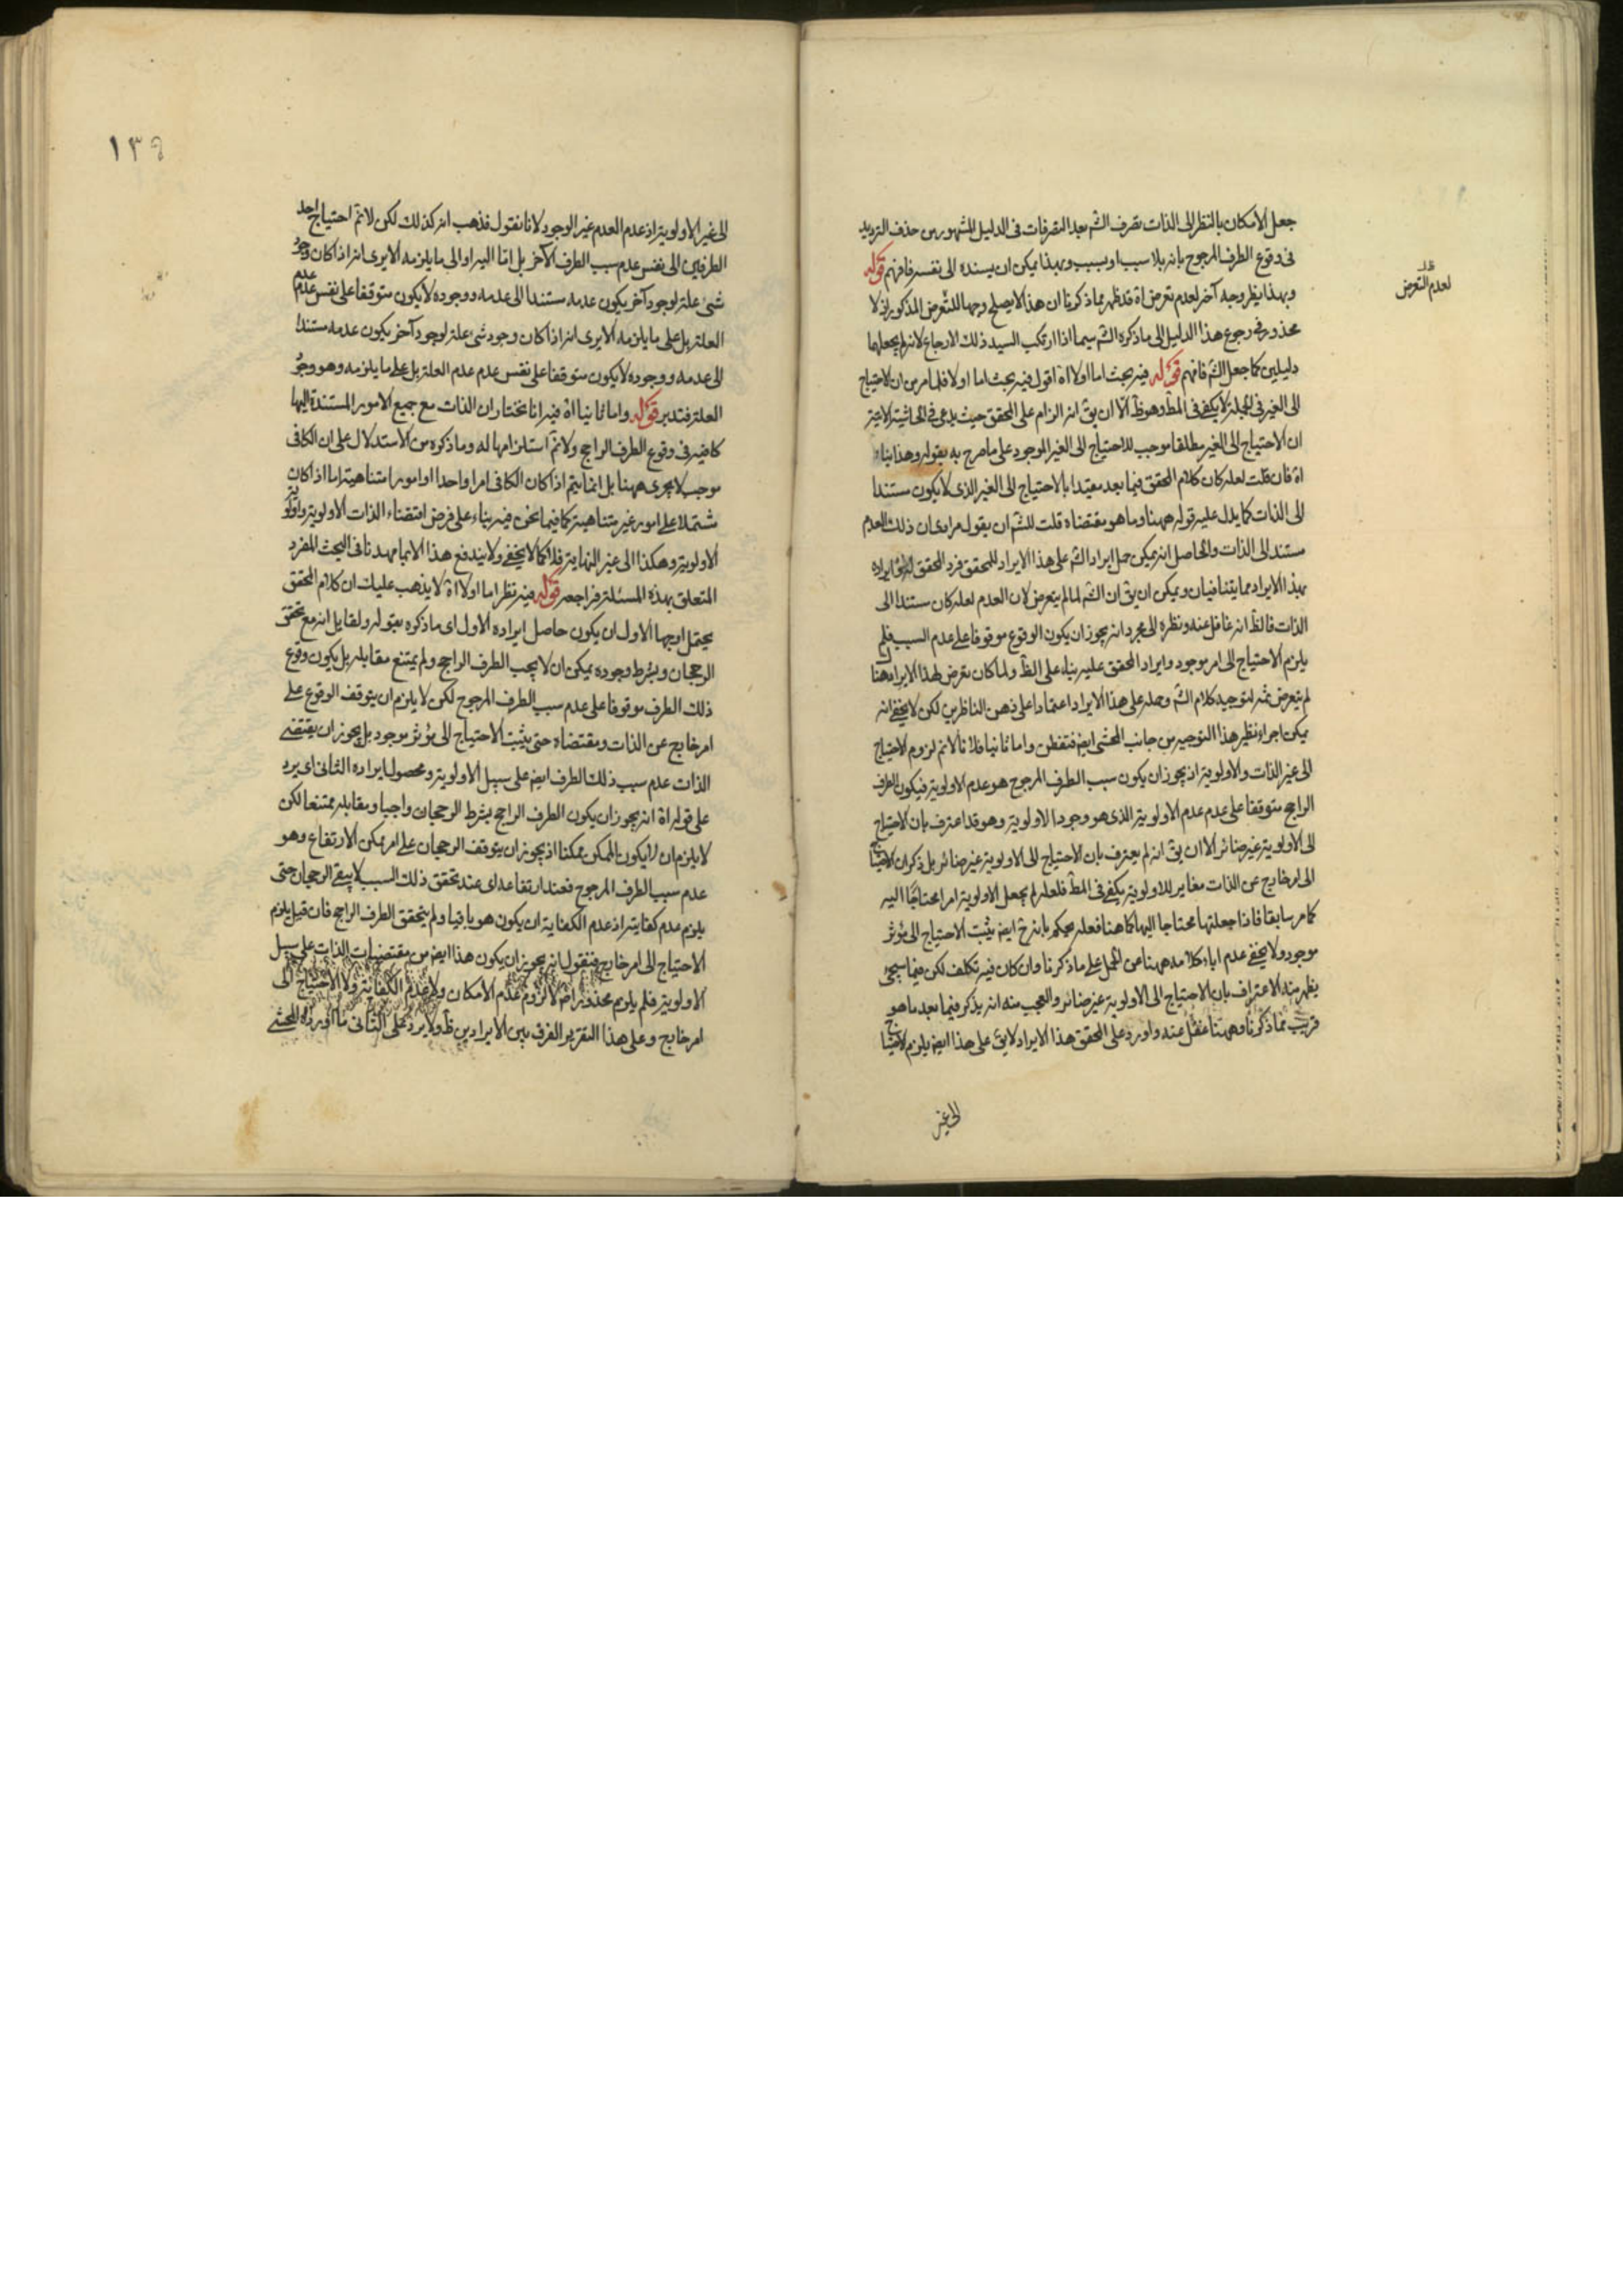 جعل الامكان بالنظر الى الذات تصرف الشم بعد التصرفات فى الدليل المشهور من حذف الترديد
فى وقوع الطرف المرجوح بانه بلا سبب او بسبب وبهذا يمكن ان يسنده الى نفسه فافهم قوله
وبهذا يظهر وجه آخر لعدم تعرض اه قد ظهر مما ذكرنا ان هذا لا يصلح وجها للتعرض المذكور اذ لا
ظ
لعدم التعرض
محذور فى رجوع هذا الدليل الى ما ذكره الشم سيما اذا ارتكب السيد ذلك الارجاع لانه لم يجعلهما
دليلين كما جعل الشم فافهم قوله فيه بحث اما اولا اه اقول فيه بحث اما اولا فلما مر من ان الاحتياج
الى الغير فى الجملة لا يكفى فى المط وهو ظ الا ان يق انه الزام على المحقق حيث يدعى فى الحاشية الاتية
ان الاحتياج الى الغير مطلقا موجب للاحتياج الى الغير الموجود على ما صرح به بقوله وهذا بناء
اه فان قلت لعله كان كلام المحقق فيما بعد مقيدا بالاحتياج الى الغير الذى لا يكون مستندا
الى الذات كما يدل عليه قوله ههنا وما هو مقتضاه قلت للشم ان يقول مرادى ان ذلك العدم
مستند الى الذات والحاصل انه يمكن حمل ايراد الشم على هذا الايراد للمحقق فرد المحقق له ايراده
بهذا الايراد مما يتنافيان ويمكن ان يق ان الشم لما لم يتعرض لان العدم لعله كان مستندا الى
الذات فالظ انه غافل عنه ونظره الى مجرد انه يجوز ان يكون الوقوع موقوفا على عدم السبب فلم
يلزم الاحتياج الى امر موجود وايراد المحقق عليه بناء على الظ ولما كان تعرض لهذا الايراد هنا
لم يتعرض ثمه لتوجيه كلام الشم وحمله على هذا الايراد اعتمادا على ذهن الناظرين لكن لا يخفى انه
يمكن اجراء نظير هذا التوجيه من جانب المحشى ايض فتفطن واما ثانيا فلانا لانم لزوم الاحتياج
الى غير الذات والاولوية اذ يجوز ان يكون سبب الطرف المرجوح هو عدم الاولوية فيكون الطرف
الراجح متوقفا على عدم عدم الاولوية الذى هو وجود الاولوية وهو قد اعترف بان الاحتياج
الى الاولوية غير ضائر الا ان يق انه لم يعترف بان الاحتياج الى الاولوية غير ضائر بل ذكر ان الاحتياج
الى امر خارج عن الذات مغاير للاولوية يكفى فى المط فلعله لم يجعل الاولوية امرا محتاجا اليه
كما مر سابقا فاذا جعلتها محتاجا اليها كما هنا فعله يحكم بانه ح ايض يثبت الاحتياج الى مؤثر
موجود ولا يخفى عدم اباء كلامه ههنا عن الحمل على ما ذكرنا وان كان فيه تكلف لكن فيما سيجئ
يظهر منه الاعتراف بان الاحتياج الى الاولوية غير ضائر والعجب منه انه يذكر فيما بعد ما هو
قريب مما ذكرنا وههنا غفل عنه واورد على المحقق هذا الايراد لا يق على هذا ايض يلزم الاحتياج
الى غير
١٣٩
الى غير الاولوية اذ عدم العدم غير الوجود لانا نقول فذهب انه كذلك لكن لانم احتياج احد
الطرفين الى نفس عدم سبب الطرف الآخر بل اما اليه او الى ما يلزمه الا يرى انه اذا كان وجود
شئ علة لوجود آخر يكون عدمه مستندا الى عدمه ووجوده لا يكون متوقفا على نفس عدم عدم
العلة بل على ما يلزمه الا يرى انه اذا كان وجود شئ علة لوجود آخر يكون عدمه مستندا
الى عدمه ووجوده لا يكون متوقفا على نفس عدم عدم العلة بل على ما يلزمه وهو وجود
العلة فتدبر قوله واما ثانيا اه فيه انا نختار ان الذات مع جميع الامور المستندة اليها
كافية فى وقوع الطرف الراجح ولانم استلزامها له وما ذكره من الاستدلال على ان الكافى
موجب لا يجرى ههنا بل انما يتم اذا كان الكافى امرا واحدا او امورا متناهية اما اذا كان
مشتملا على امور غير متناهية كما فيما نحن فيه بناء على فرض اقتضاء الذات الاولوية واولوية
الاولوية وهكذا الى غير النهاية فلا كما لا يخفى ولا يندفع هذا الا بما مهدنا فى البحث المفرد
المتعلق بهذه المسئلة فراجعه قوله فيه نظر اما اولا اه لا يذهب عليك ان كلام المحقق
يحتمل وجها الاول ان يكون حاصل ايراده الاول اى ما ذكره بقوله ولقايل انه مع تحقق
الرجحان وبشرط وجوده يمكن ان لا يجب الطرف الراجح ولم يمتنع مقابله بل يكون وقوع
ذلك الطرف موقوفا على عدم سبب الطرف المرجوح لكن لا يلزم ان يتوقف الوقوع على
امر خارج عن الذات ومقتضاه حتى يثبت الاحتياج الى مؤثر موجود بل يجوز ان يقتضى
الذات عدم سبب ذلك الطرف ايض على سبيل الاولوية ومحصول ايراده الثانى اى يرد
على قوله اه انه يجوز ان يكون الطرف الراجح بشرط الرجحان واجبا ومقابله ممتنعا لكن
لا يلزم ان لا يكون الممكن ممكنا اذ يجوز ان يتوقف الرجحان على امر ممكن الارتفاع وهو
عدم سبب الطرف المرجوح فعند ارتفاعه اى عند تحقق ذلك السبب لا يبقى الرجحان حتى
يلزم عدم كفايته اذ عدم الكفاية ان يكون هو باقيا ولم يتحقق الطرف الراجح فان قيل يلزم
الاحتياج الى امر خارج فنقول انه يجوز ان يكون هذا ايض من مقتضيات الذات على سبيل
الاولوية فلم يلزم محذور اض لا لزوم عدم الامكان ولا عدم الكفاية ولا الاحتياج الى
امر خارج وعلى هذا التقرير الفرق بين الايرادين ظ ولا يرد على الثانى ما اورده المحشى